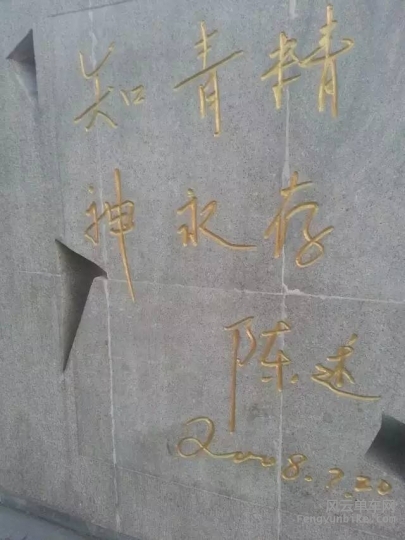 知青精
神永存
陈述
2008.7.20
风云单车网
Fengyunbike.com